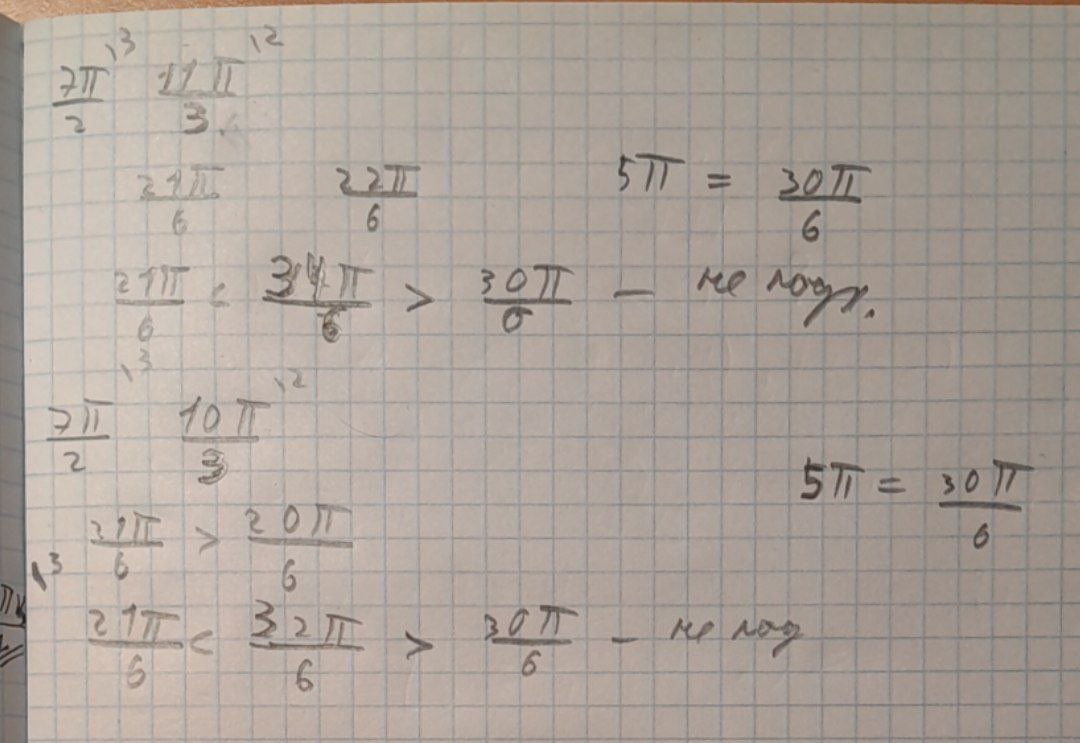 7π/2 ,3 11π/3 ,2
21π/6 22π/6 5π = 30π/6
21π/6 < 34π/6 > 30π/6 — не подх.
7π/2 ,3 10π/3 ,2
5π = 30π/6
21π/6 > 20π/6
,3
21π/6 < 32π/6 > 30π/6 – не под